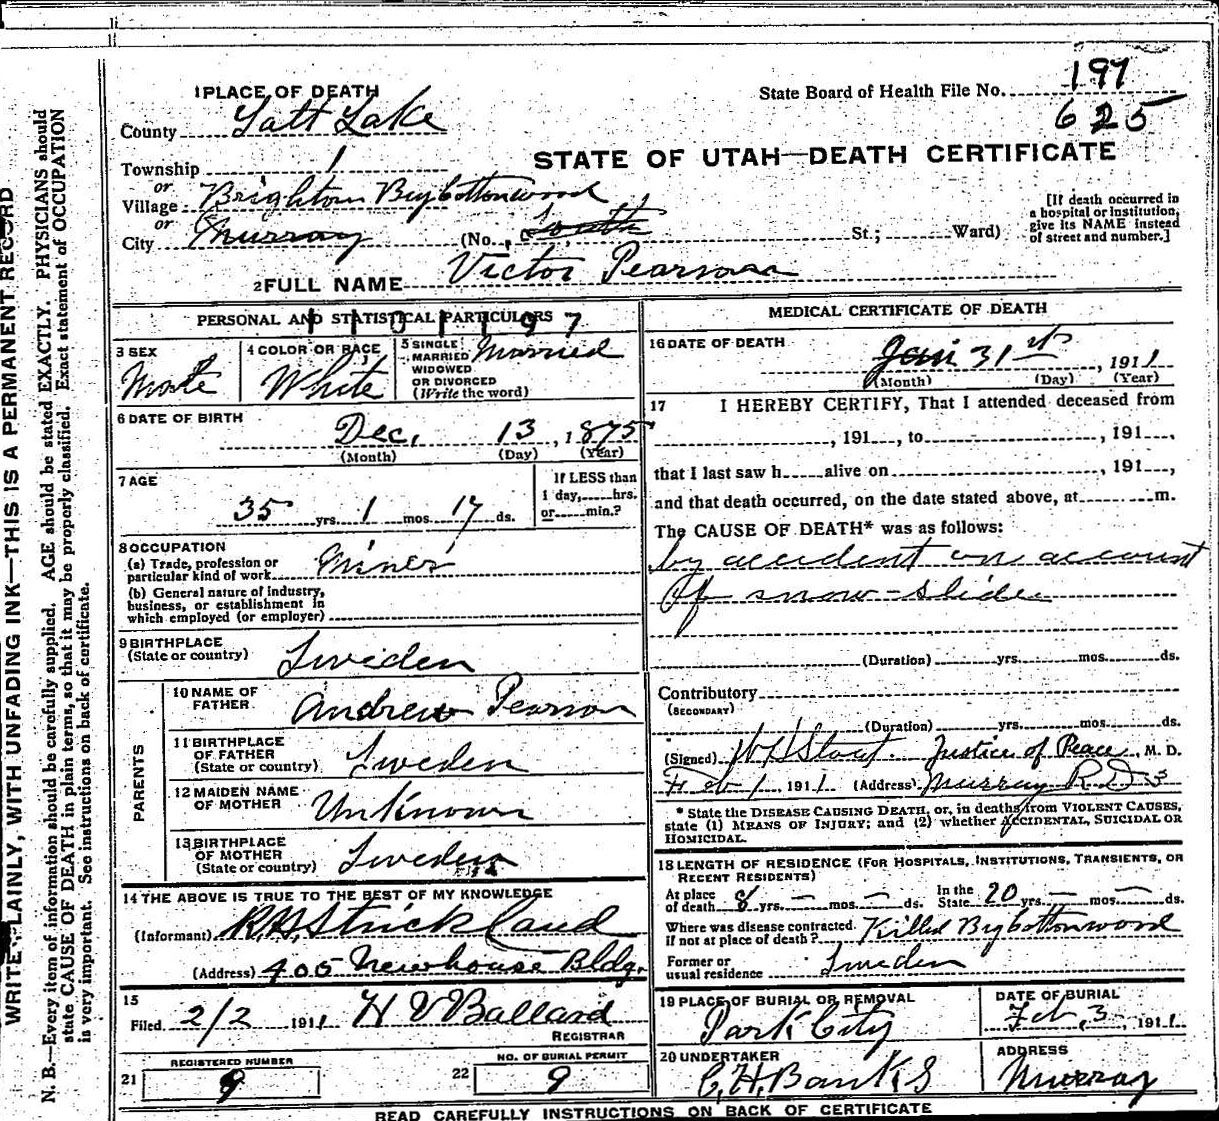 1 PLACE OF DEATH
State Board of Health File No. 197
County Salt Lake
625
Township 1
STATE OF UTAH—DEATH CERTIFICATE
or
Village Brighton Big Cottonwood
or
City Murray (No. South St.; Ward)
[If death occurred in
a hospital or institution,
give its NAME instead
of street and number.]
2 FULL NAME Victor Pearson
PERSONAL AND STATISTICAL PARTICULARS
1101197
3 SEX
Male
4 COLOR OR RACE
White
5 SINGLE, Married
MARRIED
WIDOWED
OR DIVORCED
(Write the word)
6 DATE OF BIRTH
Dec. 13, 1875
(Month) (Day) (Year)
7 AGE
35 yrs. 1 mos. 17 ds.
If LESS than
1 day, hrs.
or min.?
8 OCCUPATION
(a) Trade, profession or
particular kind of work Miner
(b) General nature of industry,
business, or establishment in
which employed (or employer)
9 BIRTHPLACE
(State or country) Sweden
PARENTS
10 NAME OF
FATHER Andrew Pearson
11 BIRTHPLACE
OF FATHER
(State or country) Sweden
12 MAIDEN NAME
OF MOTHER Unknown
13 BIRTHPLACE
OF MOTHER
(State or country) Sweden
14 THE ABOVE IS TRUE TO THE BEST OF MY KNOWLEDGE
(Informant) R.H. Strickland
(Address) 405 Newhouse Bldg.
15
Filed 2/2 1911 H V Ballard
REGISTRAR
REGISTERED NUMBER
21 9
NO. OF BURIAL PERMIT
22 9
MEDICAL CERTIFICATE OF DEATH
16 DATE OF DEATH
Jan 31st, 1911
(Month) (Day) (Year)
17 I HEREBY CERTIFY, That I attended deceased from
, 191 , to , 191 ,
that I last saw h alive on , 191 ,
and that death occurred, on the date stated above, at m.
The CAUSE OF DEATH* was as follows:
by accident on account
of snow-slide
(Duration) yrs. mos. ds.
Contributory
(SECONDARY)
(Duration) yrs. mos. ds.
(Signed) W H Stout. Justice of Peace, M. D.
Feb 1 1911 (Address) Murray R.D 3
* State the DISEASE CAUSING DEATH, or, in deaths from VIOLENT CAUSES,
state (1) MEANS OF INJURY; and (2) whether ACCIDENTAL, SUICIDAL OR
HOMICIDAL.
18 LENGTH OF RESIDENCE (FOR HOSPITALS, INSTITUTIONS, TRANSIENTS, OR
RECENT RESIDENTS)
At place
of death 8 yrs. – mos. – ds. In the
State 20 yrs. – mos. – ds.
Where was disease contracted
if not at place of death? Killed Big Cottonwood
Former or
usual residence Sweden
19 PLACE OF BURIAL OR REMOVAL
Park City
DATE OF BURIAL
Feb, 3, 1911
20 UNDERTAKER
C.H. Banks
ADDRESS
Murray
READ CAREFULLY INSTRUCTIONS ON BACK OF CERTIFICATE
WRITE PLAINLY, WITH UNFADING INK—THIS IS A PERMANENT RECORD
N. B.—Every item of information should be carefully supplied. AGE should be stated EXACTLY. PHYSICIANS should
state CAUSE OF DEATH in plain terms, so that it may be properly classified. Exact statement of OCCUPATION
is very important. See instructions on back of certificate.